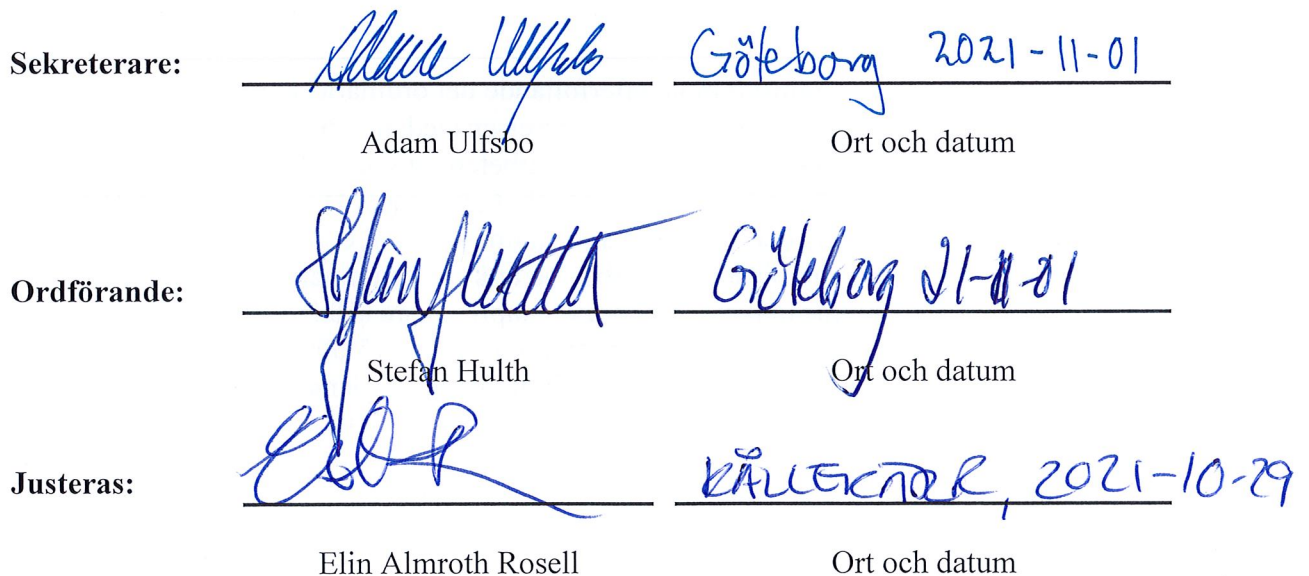 Sekreterare: Adam Ulfsbo Göteborg 2021-11-01
Adam Ulfsbo Ort och datum
Ordförande: Stefan Hulth Göteborg 21-11-01
Stefan Hulth Ort och datum
Justeras: 2021-10-29
Elin Almroth Rosell Ort och datum